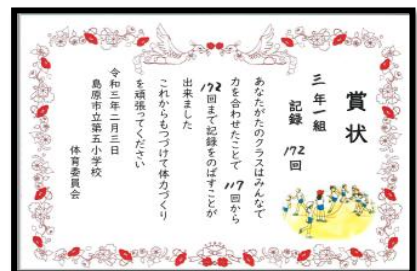 賞状
三年一組
記録 172回
あなたがたのクラスはみんなで
力を合わせたことで 117回から
172回まで記録をのばすことが
出来ました
これからもつづけて体力づくり
を頑張ってください
令和三年二月三日
島原市立第五小学校
体育委員会